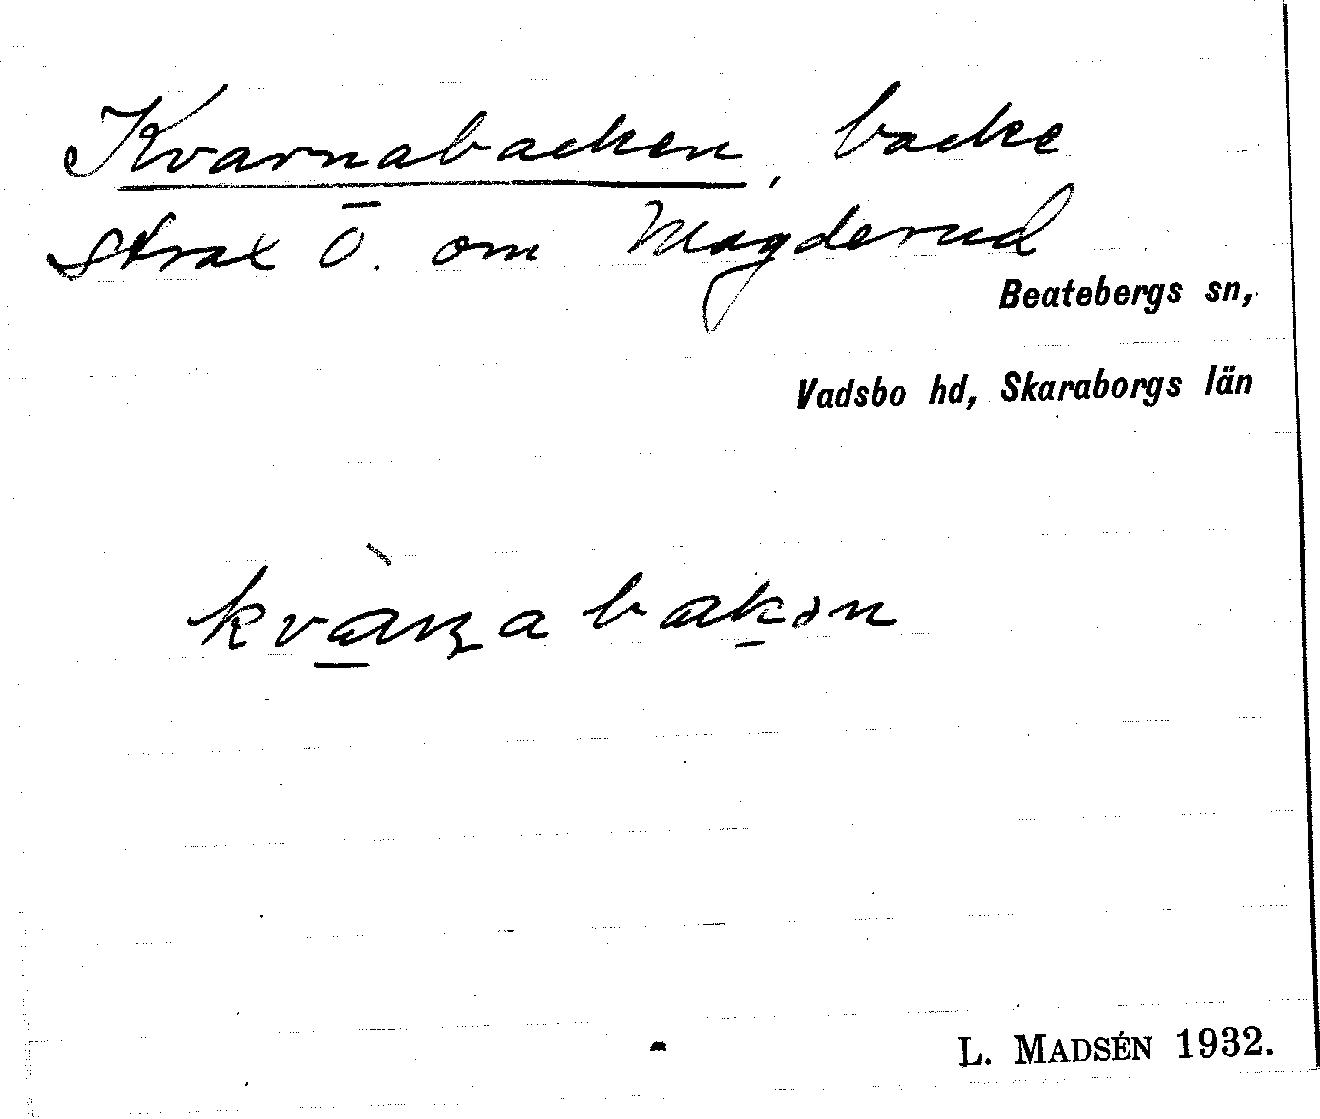 Kvarnabacken, backe
strax Ö. om Magderud
Beatebergs sn,
Vadsbo hd, Skaraborgs län
kvàɳabakən
L. MADSÉN 1932.